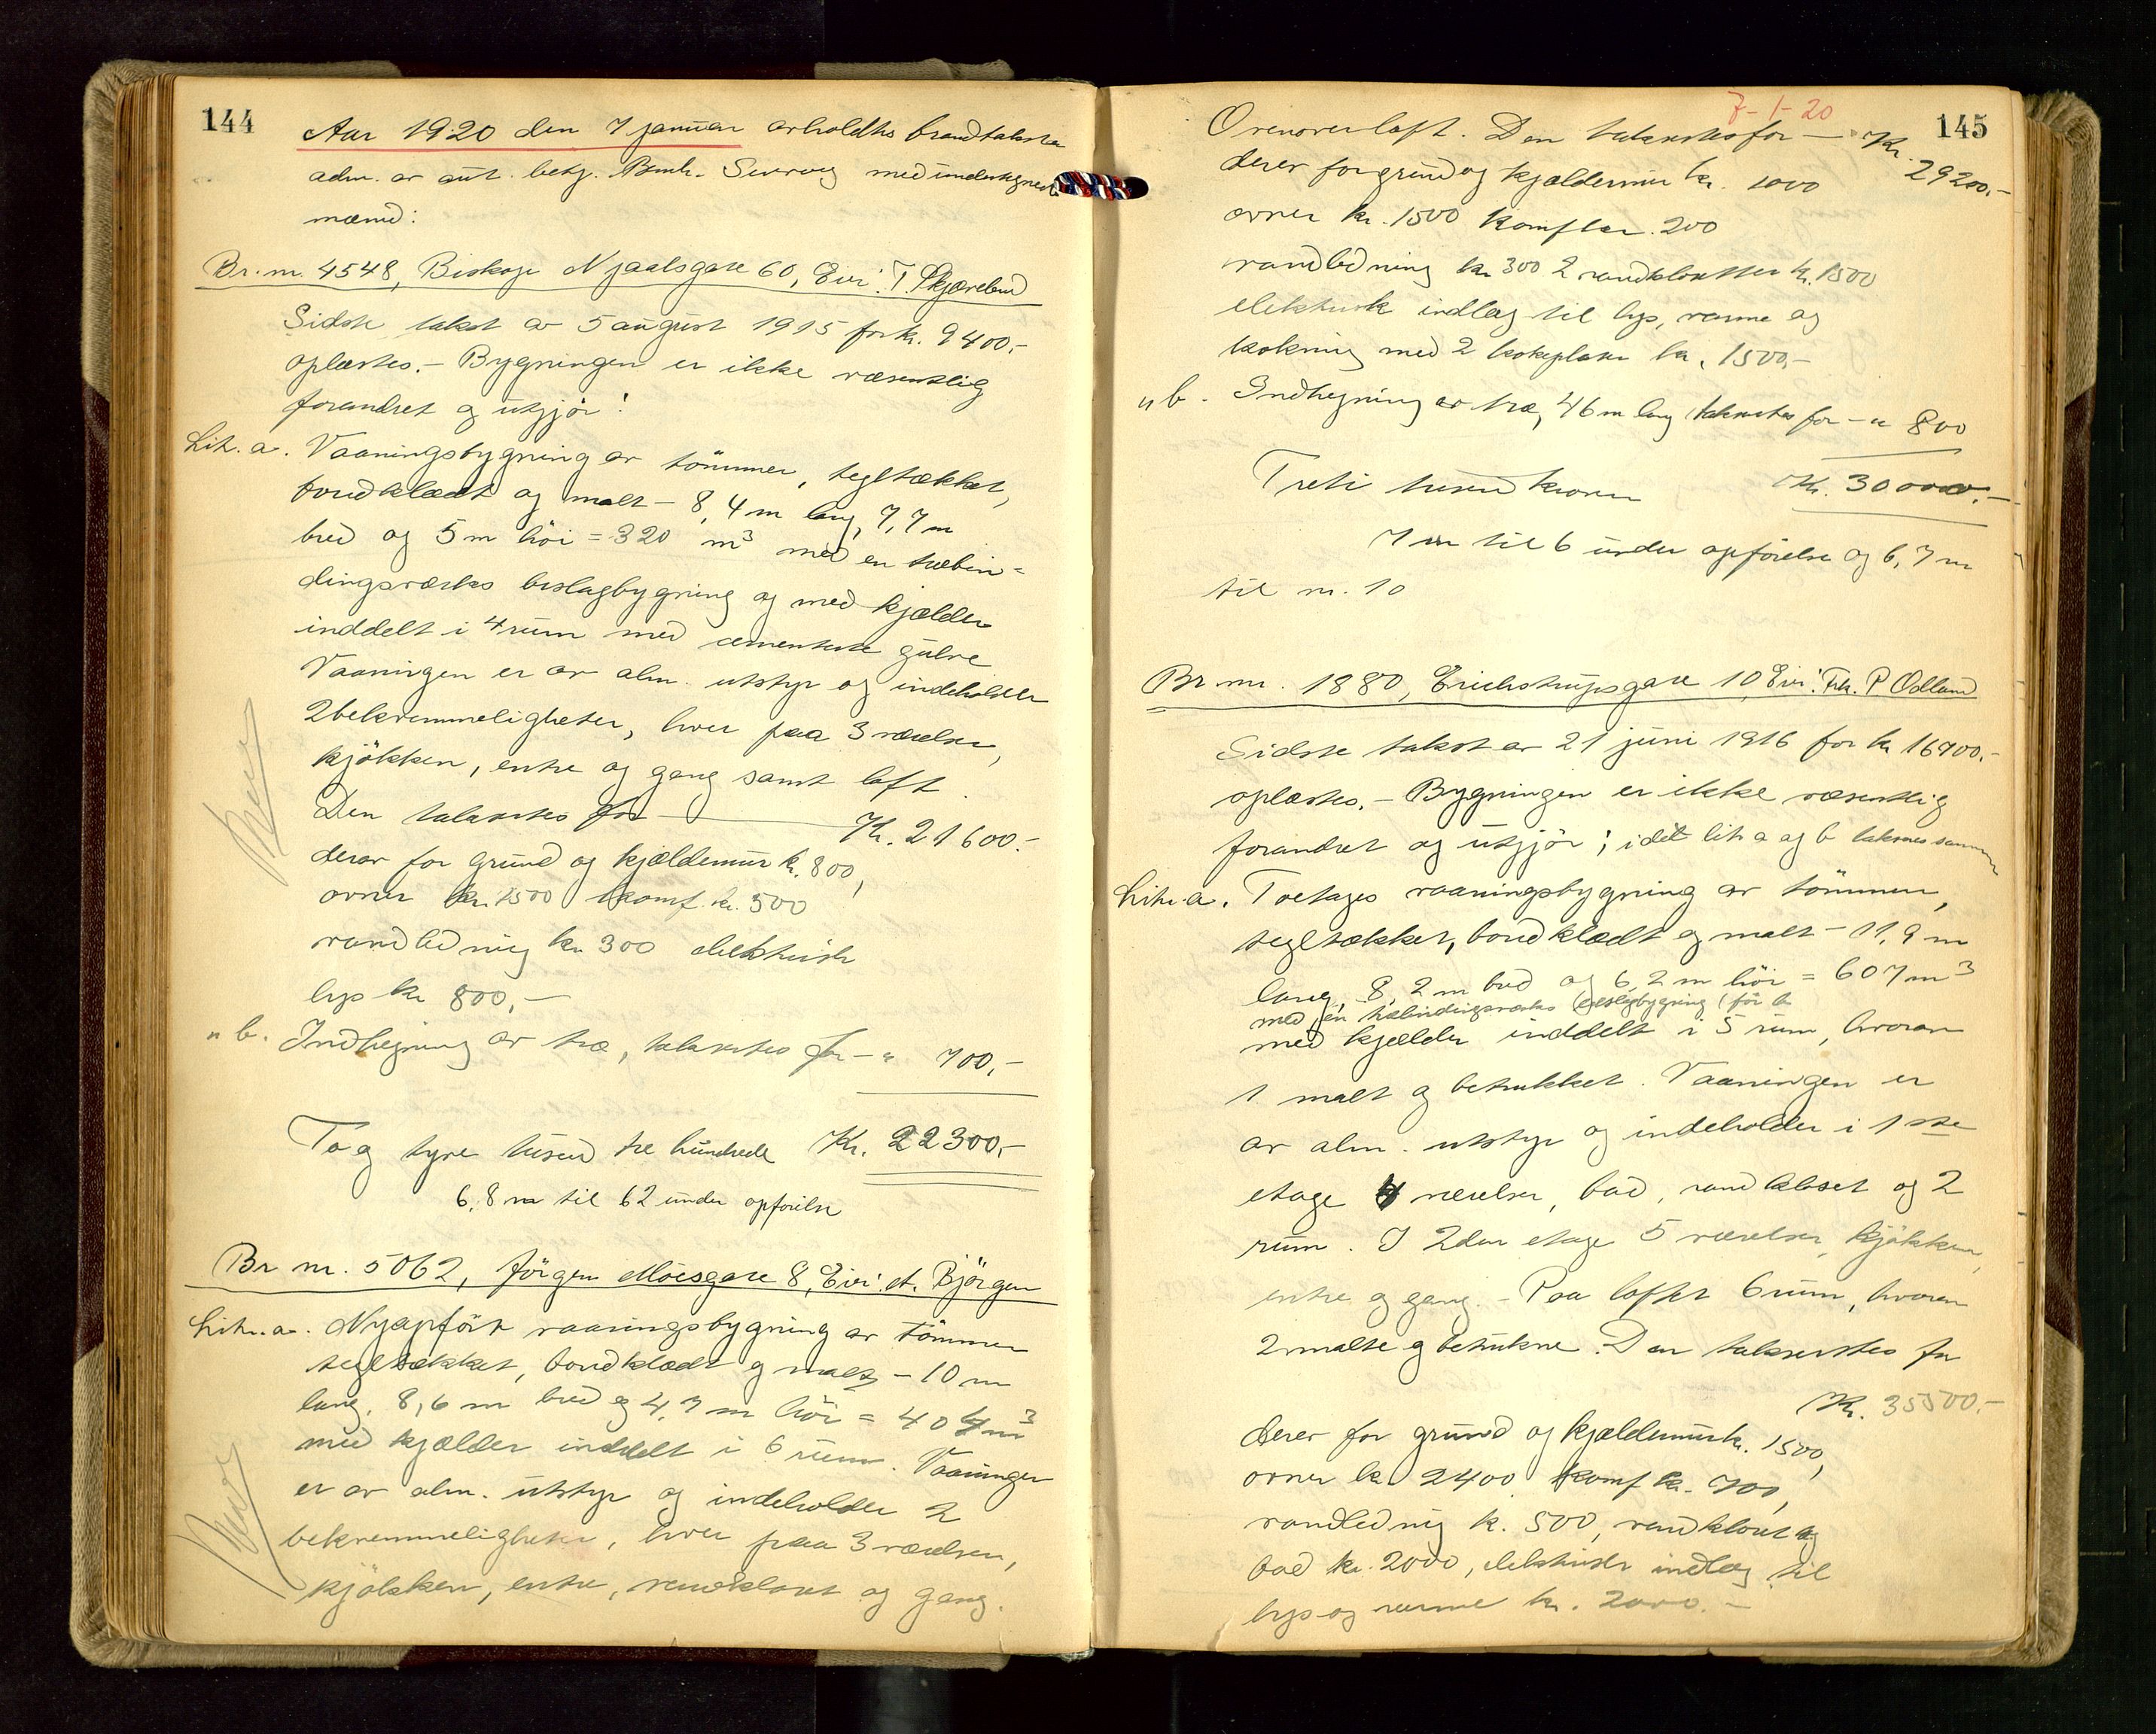 144
Aar 1920 den 7 januar avholdtes brandtakster
adm. av aut. betj. Bmk. med undertegnede
mænd:
Br. nr. 4548, Biskop Njaalsgate 60, Eier: T. Skjævelund
Sidste takst av 5 august 1915 for kr. 9400,-
oplæstes. - Bygningen er ikke væsentlig
forandret og utgjör:
Litr. a. Vaaningsbygning av tömmer, tegltækket,
bordklædt og malt - 8,4 m lang, 7,7 m
bred og 5 m höi = 320 m³ med en træbin=
dingsværks beslagbygning og med kjælder
inddelt i 4 rum med cementerte gulve
Vaaningen er av alm. utstyr og indeholder
2 bekvemmeligheter, hver paa 3 værelser,
kjökken, entre og gang samt loft.
Den takseres for - Kr. 21600.-
derav for grund og kjældermur kr. 800,
ovner kr. 1500 komf. kr. 500
vandledning kr 300 elektrisk
lys kr 800,-
" b. Indhegning av træ, takseres for - " 700,-
To og tyve tusend tre hundrede Kr. 22300,-
6,8 m til 62 under opförelse
Br nr. 5062, Jörgen Moesgate 8, Eier: A. Björgen
Litr. a. Nyopfört vaaningsbygning av tömmer
tegltækket, bordklædt og malt - 10 m
lang, 8,6 m bred og 4,7 m höi = 404 m³
med kjælder inddelt i 6 rum. Vaaningen
er av alm. utstyr og indeholder 2
bekvemmeligheter, hver paa 3 værelser,
kjökken, entre, vandkloset og gang.
7-1-20
145
Ovenover loft. Den takseres for - Kr. 29200,-
derav for grund og kjældermur kr. 1000
ovner kr. 1500 komfur kr. 200
vandledning kr 300 2 vandklosetter kr. 1500
elektrisk indlæg til lys, varme og
kokning med 2 kokeplater kr. 1500,-
" b. Indhegning av træ, 46 m lang takseres for - " 800
Treti tusend kroner Kr. 30000,-
7 m til 6 under opförelse og 6,7 m
til nr. 10
Br nr. 1880, Erichstrupsgate 10, Eier: Frk. P Ödland
Sidste takst av 21 juni 1916 for kr 16900.-
oplæstes. - Bygningen er ikke væsentlig
forandret og utgjör; idet litr a og b takseres sammen
Litr. a. Toetages vaaningsbygning av tömmer,
tegltækket, bordklædt og malt - 11,9 m
lang, 8,2 m bred og 6,2 m höi = 607 m³
med en træbindingsværks beslagbygning (för b
med kjælder inddelt i 5 rum, hvorav
1 malt og betrukket. Vaaningen er
av alm. utstyr og indeholder i 1ste
etage 4 værelser, bad, vandkloset og 2
rum. I 2den etage 5 værelser, kjökken,
entre og gang. - Paa loftet 6 rum, hvorav
2 malte og betrukne. Den takseres for
Kr. 35500.-
derav for grund og kjældermur kr. 1500,
ovner kr 2400 komf kr. 700,
vandledning kr. 500, vandkloset og
bad kr. 2000, elektrisk indlæg til
lys og varme kr. 2000.-